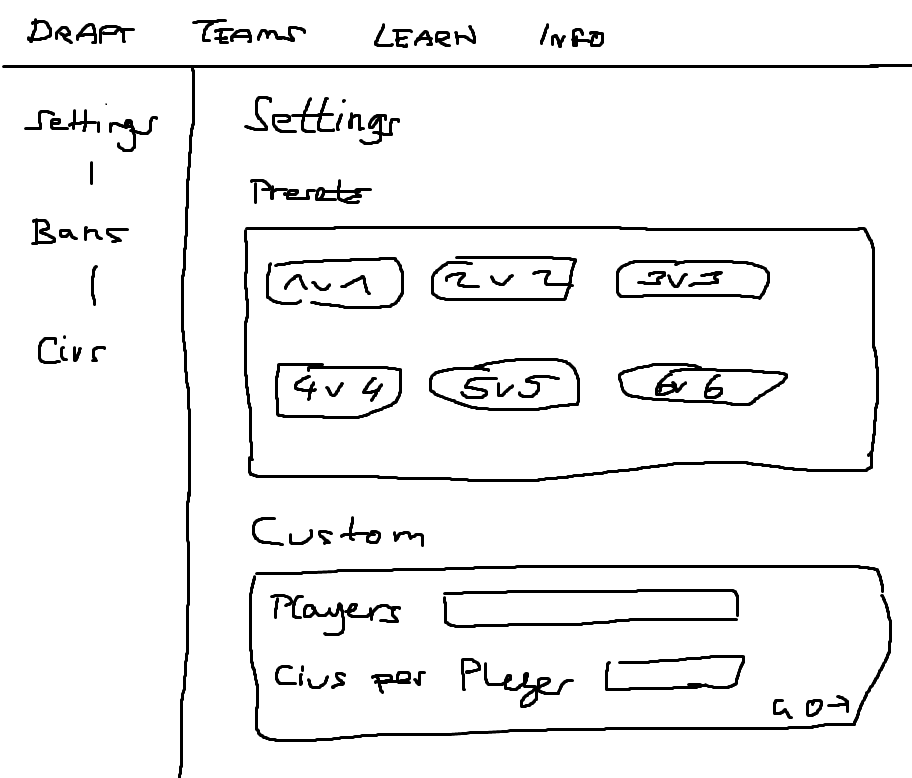 DRAFT TEAMS LEARN INFO
Settings
Bans
Civs
Settings
Presets
1v1 2v2 3v3
4v4 5v5 6v6
Custom
Players
Civs per Player
GO→